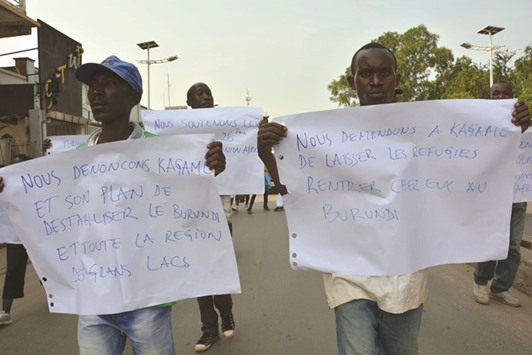 NOUS DENONCONS KAGAME
ET SON PLAN DE
DESTABILISER LE BURUNDI
ET TOUTE LA REGION
DES GRANS LACS
NOUS DEMANDONS A KAGAME
DE LAISSER LES REFUGIES
RENTRER CHEZ EUX AU
BURUNDI
NOUS SOUTENONS LES